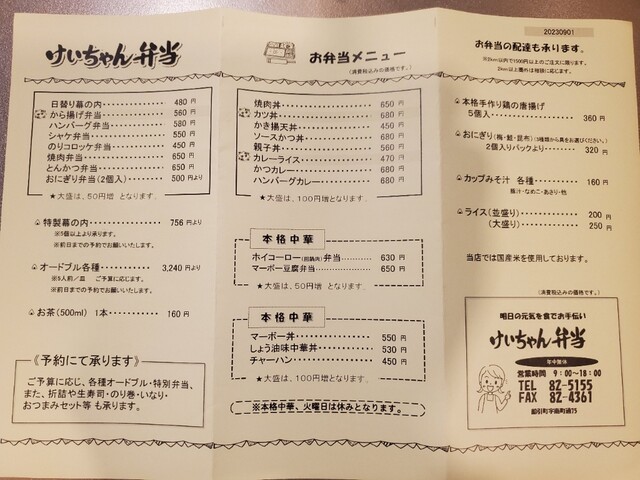 けいちゃん弁当
日替り幕の内 480円
から揚げ弁当 560円
ハンバーグ弁当 580円
シャケ弁当 550円
のりコロッケ弁当 450円
焼肉弁当 650円
とんかつ弁当 650円
おにぎり弁当(2個入) 500円より
★大盛は、50円増 となります。
特製幕の内 756円より
※5個以上より承ります。
※前日までの予約でお願いいたします。
オードブル各種 3,240円より
※5人前/皿 ご予算に応じます。
※前日までの予約でお願いいたします。
お茶(500ml) 1本 160円
《予約にて承ります》
ご予算に応じ、各種オードブル・特別弁当、
また、折詰や生寿司・のり巻・いなり・
おつまみセット等も承ります。
お弁当メニュー
(消費税込みの価格です。)
焼肉丼 650円
カツ丼 680円
かき揚天丼 450円
ソースかつ丼 680円
親子丼 560円
カレーライス 470円
かつカレー 680円
ハンバーグカレー 680円
★大盛は、100円増となります。
本格中華
ホイコーロー(回鍋肉)弁当 630円
マーボー豆腐弁当 650円
★大盛は、50円増となります。
本格中華
マーボー丼 550円
しょう油味中華丼 530円
チャーハン 450円
★大盛は、100円増となります。
※本格中華、火曜日は休みとなります。
20230901
お弁当の配達も承ります。
※2km以内で1500円以上のご注文に限ります。
2km以上圏外は相談に応じます。
本格手作り鶏の唐揚げ
5個入 360円
おにぎり(梅・鮭・昆布)(3種類から具をお選びください。)
2個入りパックより 320円
カップみそ汁 各種 160円
豚汁・なめこ・あさり・他
ライス(並盛り) 200円
(大盛り) 250円
当店では国産米を使用しております。
(消費税込みの価格です。)
明日の元気を食でお手伝い
けいちゃん弁当
年中無休
営業時間 9:00~18:00
TEL 82-5155
FAX 82-4361